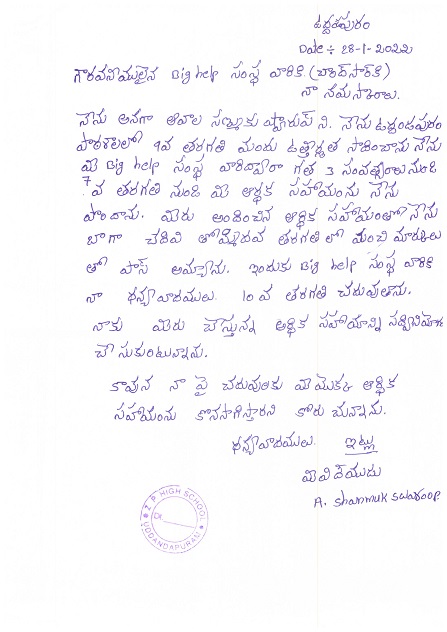 ఉద్దండపురం
Date ÷ 28-1-2022
గౌరవనీయులైన Big help సంస్థ వారికి. (చాంద్ సార్ కి)
నా నమస్కారాలు.
నేను అనగా ఆవాల షణ్ముకు స్వారూప్ ని. నేను ఉద్దండపురం
పాఠశాలలో 9వ తరగతి నుండి ఉత్తీర్ణత సాధించాను నేను
మీ Big help సంస్థ వారిద్వారా గత 3 సంవత్సరాలనుండి
7వ తరగతి నుండి మీ ఆర్థిక సహాయంను నేను
పొందాను. మీరు అందించిన ఆర్థిక సహాయంతో నేను
బాగా చదివి తొమ్మిదవ తరగతి లో మంచి మార్కులు
తో పాస్ అయ్యాను. ఇందుకు Big help సంస్థ వారికి
నా ధన్యవాదములు. 10 వ తరగతి చదువుతాను.
నాకు మీరు చేస్తున్న ఆర్థిక సహాయాన్ని సద్వినియోగ
చేసుకుంటున్నాను.
కావున నా పై చదువులకు మీ యొక్క ఆర్థిక
సహాయంను కొనసాగిస్తారని కోరుచున్నాను.
ధన్యవాదములు. ఇట్లు
మీ విదేయుడు
A. Shanmuk swaroop.
Z.P. HIGH SCHOOL
UDDANDAPURAM